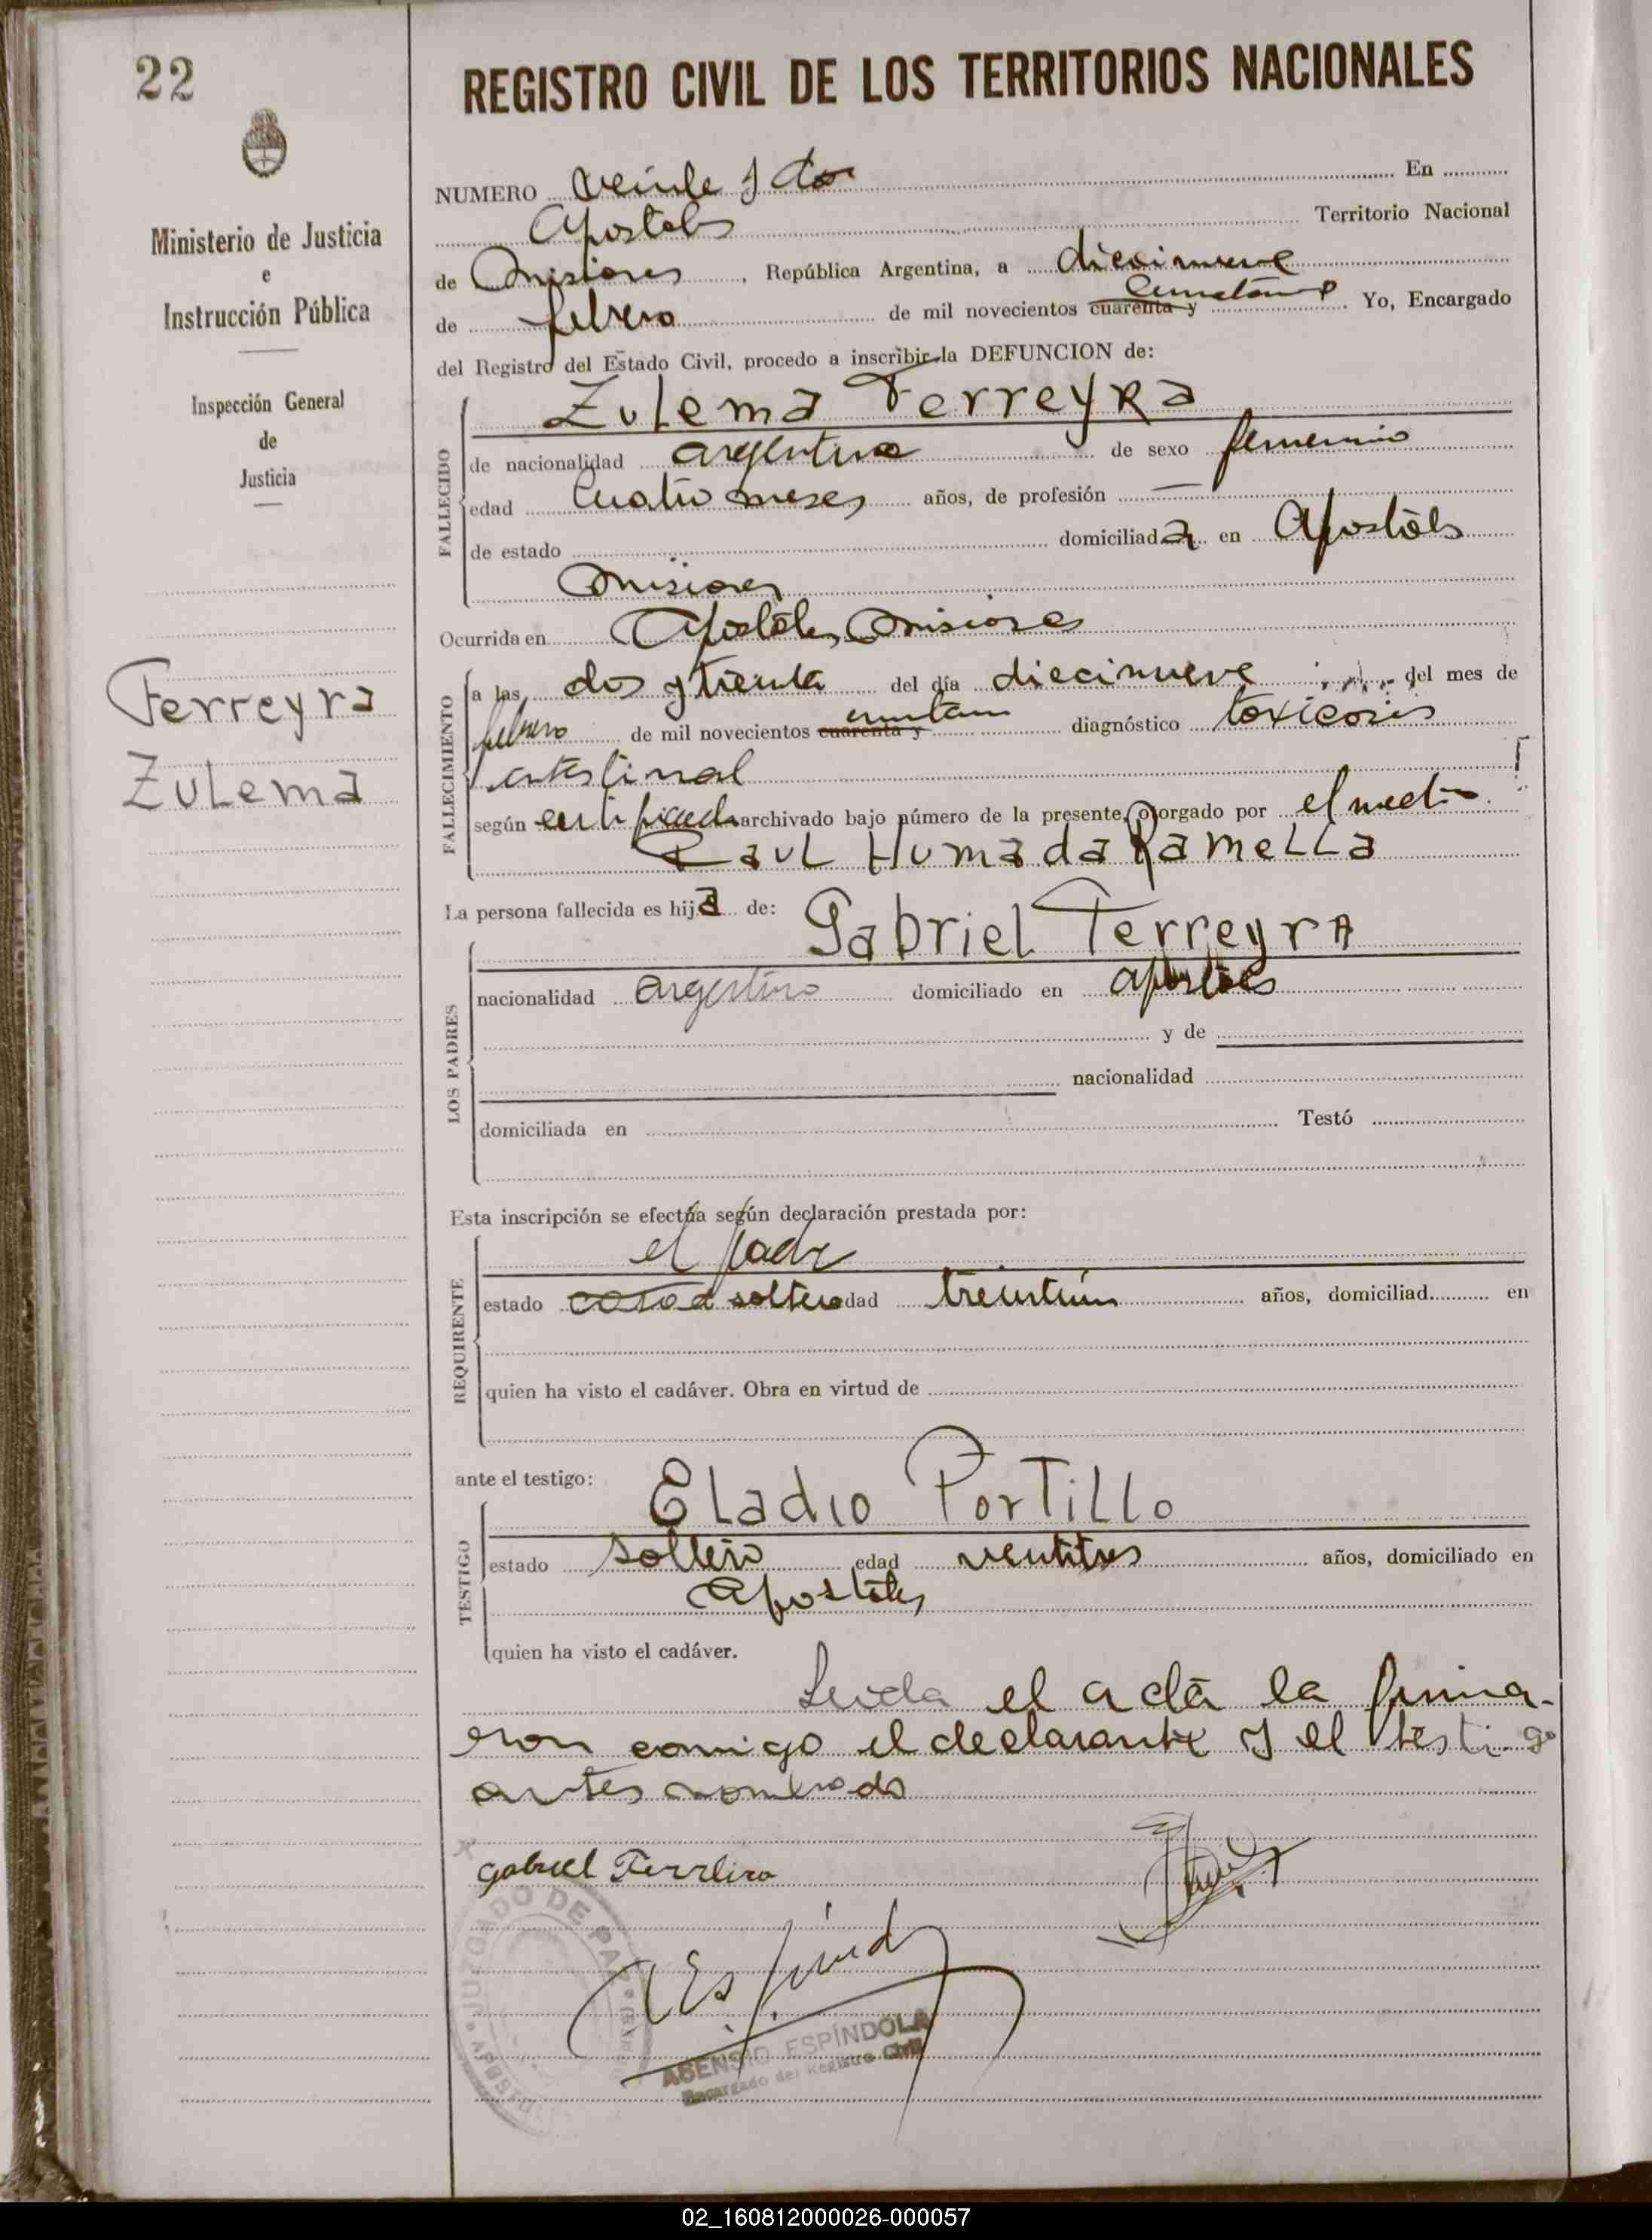 22
REGISTRO CIVIL DE LOS TERRITORIOS NACIONALES
Ministerio de Justicia
e
Instrucción Pública
Inspección General
de
Justicia
Ferreyra
Zulema
NUMERO veinte y dos En
Apostoles Territorio Nacional
de Misiones, República Argentina, a diecinueve
de febrero de mil novecientos cuarenta y cincuenta. Yo, Encargado
del Registro del Estado Civil, procedo a inscribir la DEFUNCION de:
FALLECIDO
Zulema Ferreyra
de nacionalidad argentina de sexo femenino
edad cuatro meses años, de profesión —
de estado domiciliada en Apostoles
Misiones
Ocurrida en Apostoles, Misiones
FALLECIMIENTO
a las dos y treinta del día diecinueve del mes de
febrero de mil novecientos cuarenta y cincuenta diagnóstico toxicosis
intestinal
según certificado archivado bajo número de la presente, otorgado por el medico
Raul Humada Ramella
La persona fallecida es hija de: Gabriel Ferreyra
LOS PADRES
nacionalidad argentino domiciliado en apostoles
y de
nacionalidad
domiciliada en Testó
Esta inscripción se efectúa según declaración prestada por:
REQUIRENTE
el padre
estado casad soltero edad treintiún años, domiciliad en
quien ha visto el cadáver. Obra en virtud de
ante el testigo: Eladio Portillo
TESTIGO
estado soltero edad ventitres años, domiciliado en
Apostoles
quien ha visto el cadáver.
Leida el acta la firma-
ron conmigo el declarante y el testigo
antes nombrado
Gabriel Ferreira
JUZGADO DE PAZ
ASENSIO ESPÍNDOLA
Encargado del Registro Civil
02_160812000026-000057